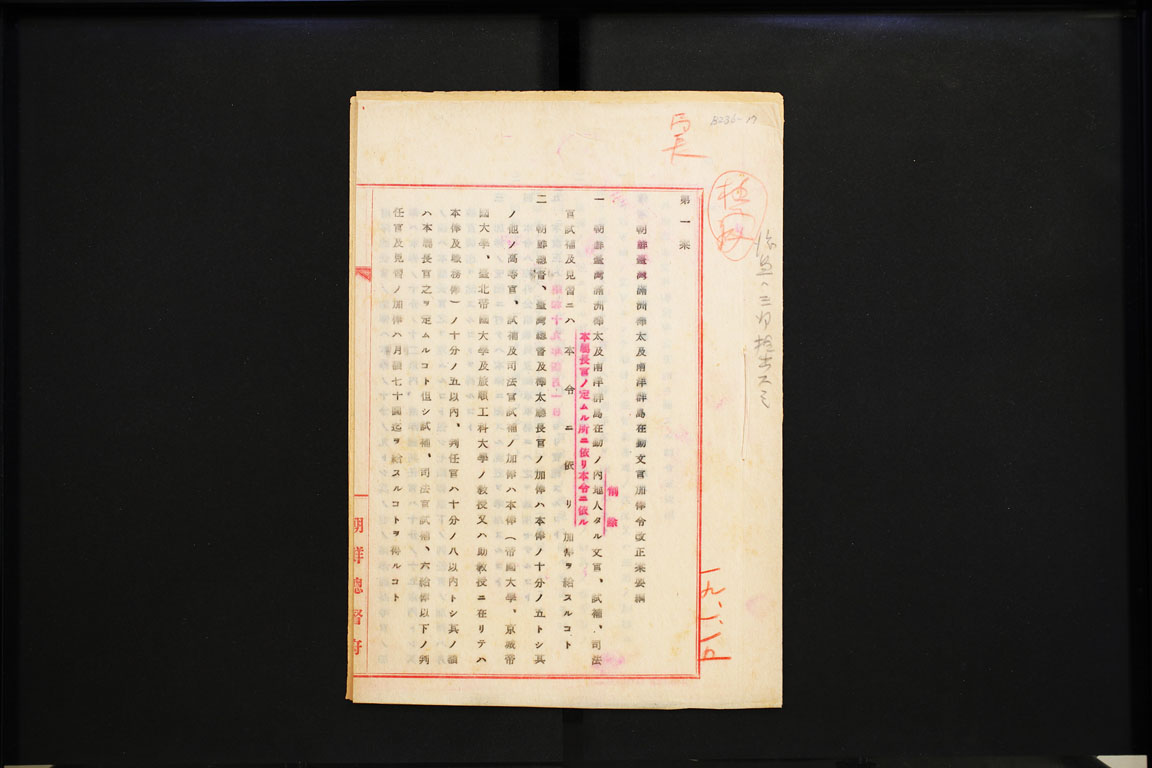 8236-17
第一案
朝鮮臺灣滿洲樺太及南洋群島在勤文官加俸令改正案要綱
削除
一 朝鮮臺灣滿洲樺太及南洋群島在勤ノ內地人タル文官、試補、司法
本屬長官ノ定ムル所ニ依リ本令ニ依ル
官試補及見習ニハ本令ニ依リ加俸ヲ給スルコト
二 朝鮮總督、臺灣總督及樺太廳長官ノ加俸ハ本俸ノ十分ノ五トシ其
ノ他ノ高等官、試補及司法官試補ノ加俸ハ本俸(帝國大學、京城帝
國大學、臺北帝國大學及旅順工科大學ノ敎授又ハ助敎授ニ在リテハ
本俸及職務俸)ノ十分ノ五以內、判任官ハ十分ノ八以內トシ其ノ額
ハ本屬長官之ヲ定ムルコト但シ試補、司法官試補、六給俸以下ノ判
任官及見習ノ加俸ハ月額七十圓迄ヲ給スルコトヲ得ルコト
朝鮮總督府
一九、一、一五